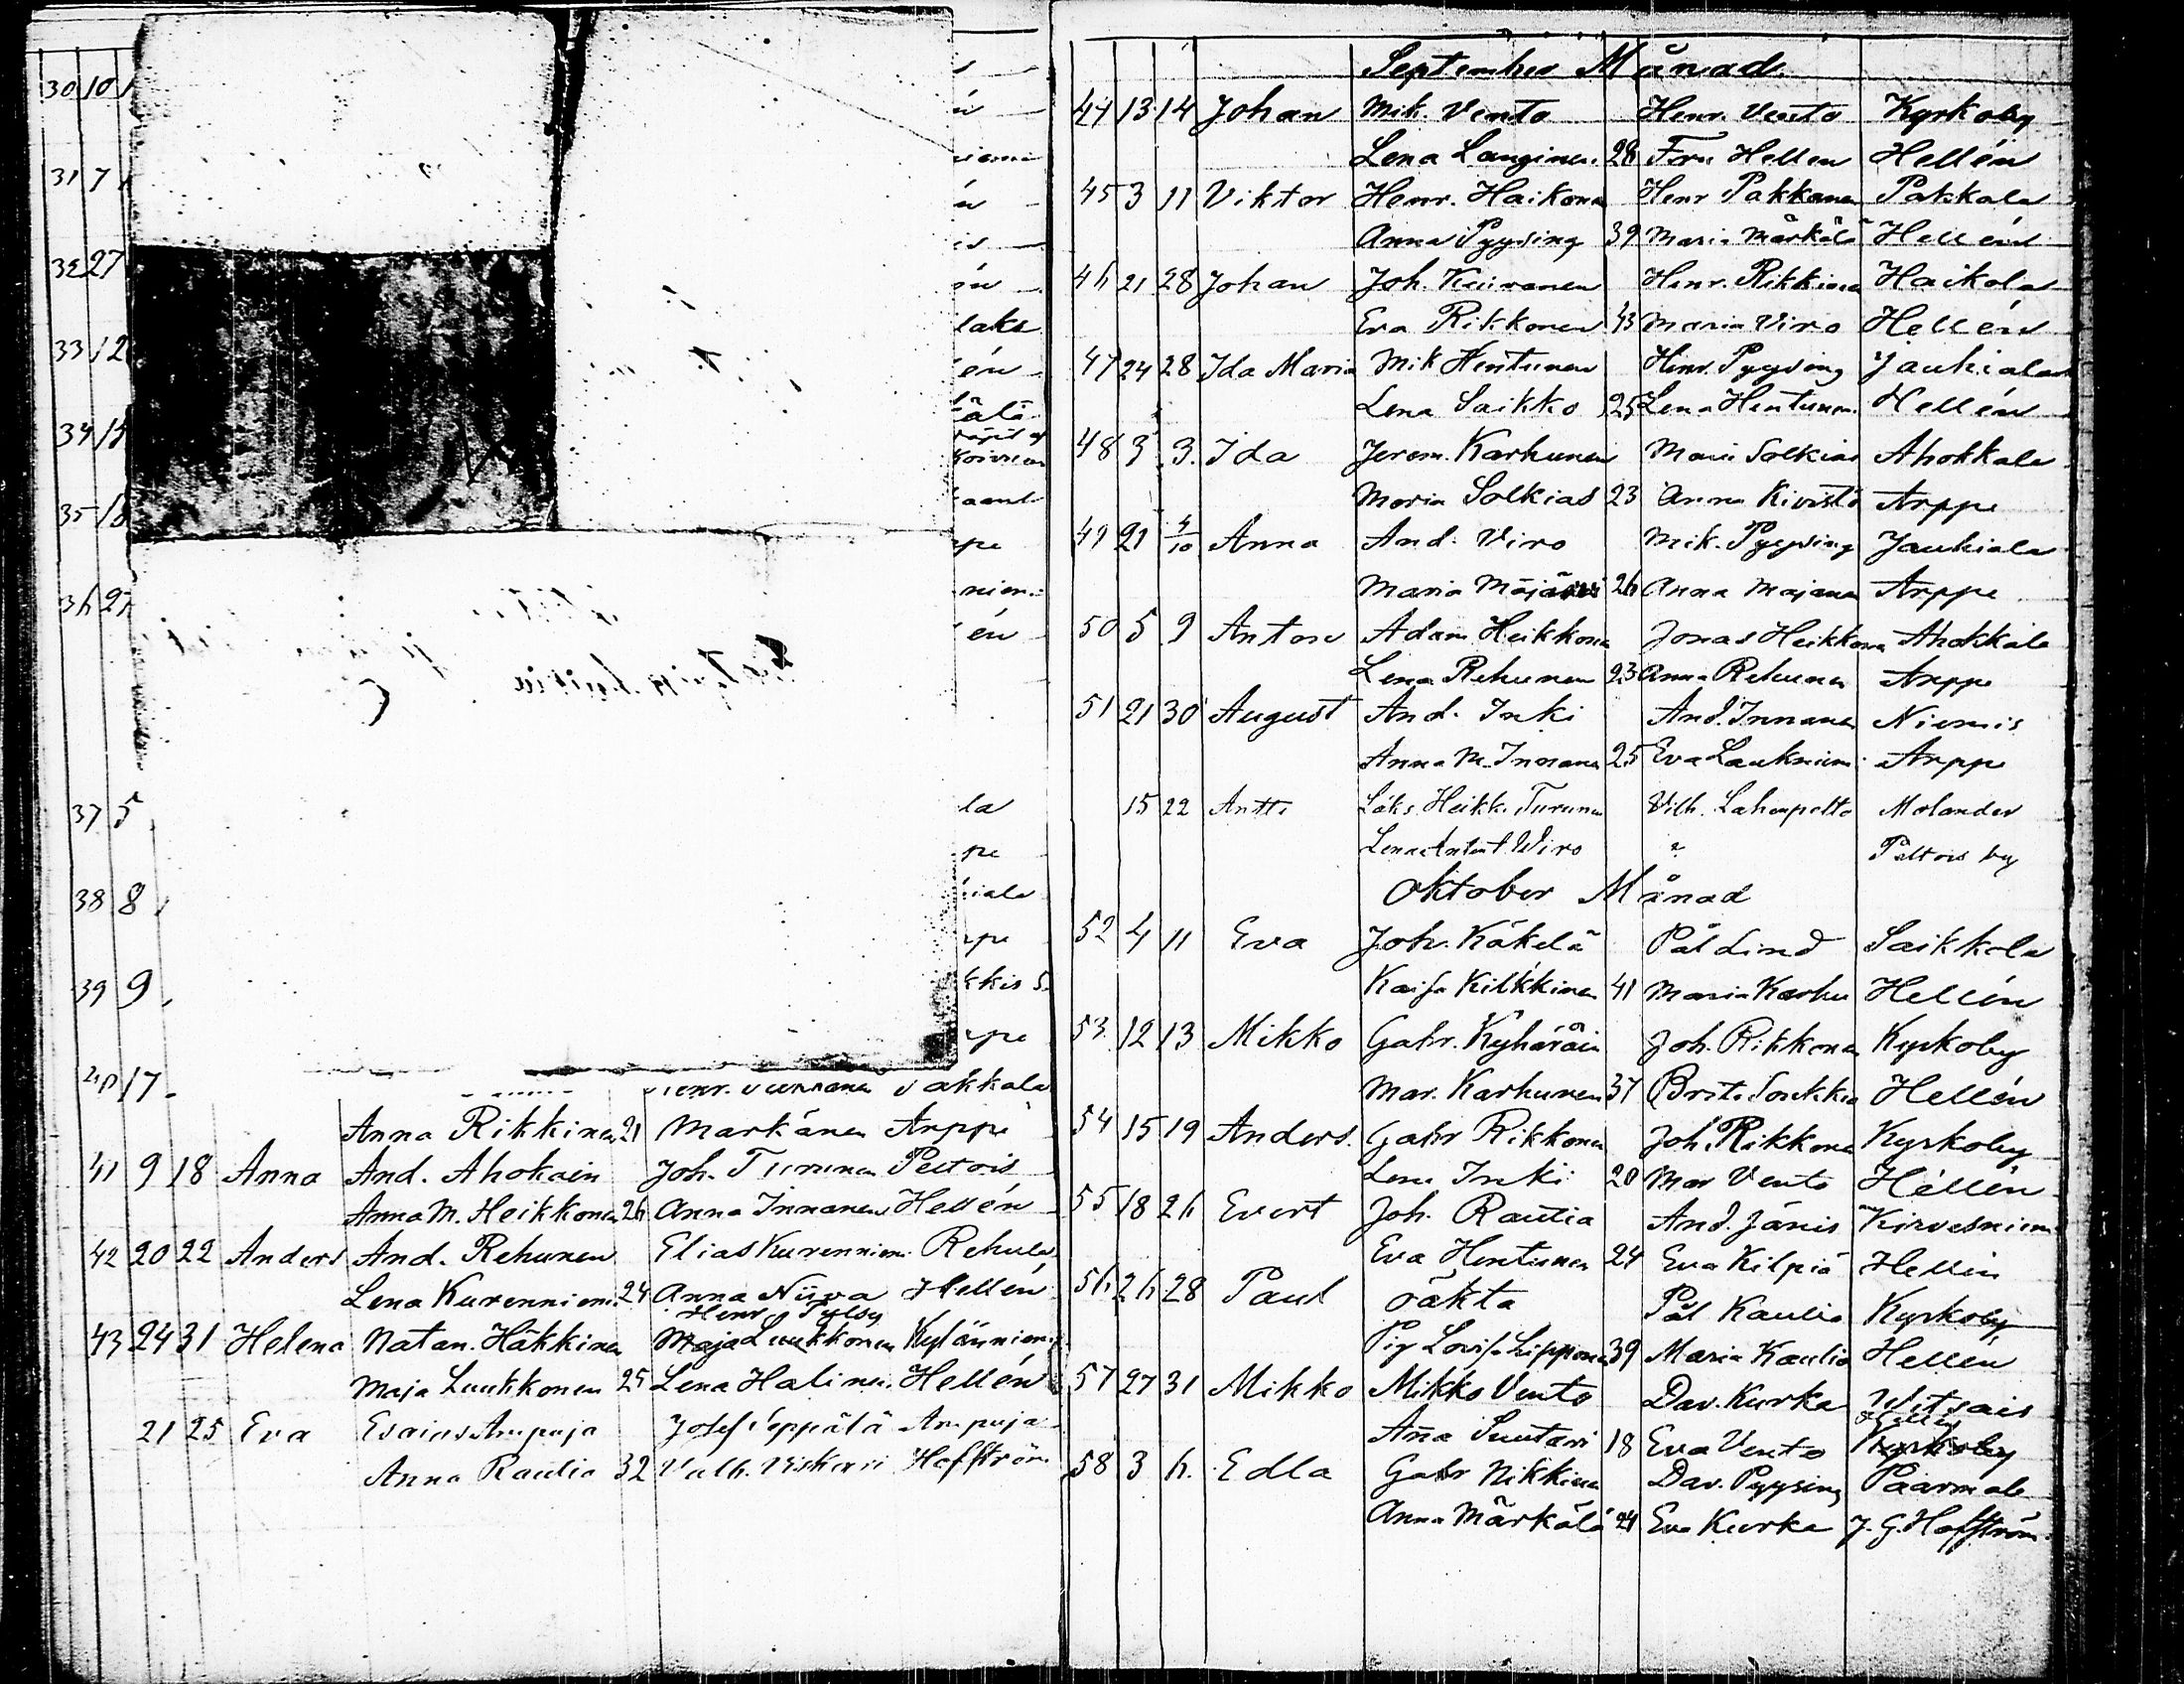 30 10
31 7
32 27
33 12
34 15
35 18
36 27
37 5
38 8
39 9
40 17
laks
én
niem.
én
la
pe
kkis
Pakkala
Anna Rikkinen 21 Markänen Arppe
41 9 18 Anna And. Ahokain Joh. Turunen Peltois
Anna M. Heikkonen 26 Anna Innanen Hellén
42 20 22 Anders And. Rehunen Elias Kurenniem. Rehula
Lena Kurenniem. 24 Anna Niiva Hellén
Henr.
43 24 31 Helena Natan. Häkkinen Maja Luukkonen Kylänniem.
Maja Luukkonen 25 Lena Halinen Hellén
21 25 Eva Esaias Ampuja Josef Seppälä Ampuja
Anna Raulio 32 Valb. Viskari Hoffström
September Månad.
44 13 14 Johan Mik. Vento Henr. Vento Kyrkoby
Lena Langinen 28 Fru Hellen Hellén
45 3 11 Viktor Henr. Haikonen Henr Pakkanen Pakkala
Anna Pyysing 39 Maria Märkälä Hellén
46 21 28 Johan Joh. Kiuranen Henr. Rikkinen Haikola
Eva Rikkonen 43 Maria Viro Hellén
47 24 28 Ida Maria Mik Hentunen Henr. Pyysing Jauhiala
Lena Saikko 25 Lena Hentunen Hellén
48 3 3. Ida Jerem. Karhunen Mari Solkias Ahokkala
Maria Solkias 23 Anna Kivistö Arppe
49 21 4/10 Anna And. Viro Mik. Pyysing Jauhiala
Maria 26 Anna Majanen Arppe
50 5 9 Anton Adam Heikkonen Jonas Heikkonen Ahokkala
Lena Rehunen 23 Anna Rehunen Arppe
51 21 30 August And. Inki And. Innanen Niemis
Anna M. Innanen 25 Eva Laukniem. Arppe
15 22 Antti Heikk. Turunen Vilh. Molander
Lena Wiro Peltois by
Oktober Månad
52 4 11 Eva Joh. Käkelä Pål Lind Saikkola
Kaisa Kilkkinen 41 Maria Karhu Hellén
53 12 13 Mikko Gabr. Kyhäräin Joh. Rikkonen Kyrkoby
Mar. Karhunen 37 Brita Soukkia Hellén
54 15 19 Anders. Gabr Rikkonen Joh. Rikkonen Kyrkoby
Lena Inki 20 Mar Vento Hellén
55 18 26 Evert Joh. Rautia And. Jänis Kirvesniem.
Eva Hentunen 24 Eva Kilpiä Hellén
56 26 28 Paul oäkta Pål Kaulio Kyrkoby
Pig Lovisa Lipponen 39 Maria Kaulio Hellén
57 27 31 Mikko Mikko Vento Dav. Kurka Witsais
Hellén
Anna Suutari 18 Eva Vento Kyrkoby
58 3 6. Edla Gabr Nikkinen Dav. Pyysing Paarmala
Anna Märkälä 24 Eva Kurka J. G. Hoffström.